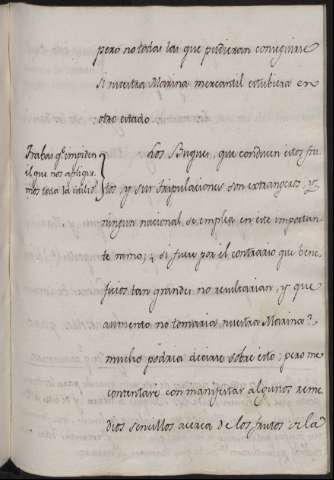 pero no todas las que pudieran conseguirse
si nuestra Marina mercantil estubiera en
otro estado
Trabas qe. impiden
el que nos aplique
mos toda la utilid.
Los Buques, que conducen estos fru
tos, y sus tripulaciones son extrangeros, y
ningun nacional se emplea en este importan
te ramo; y si fuera por el contrario que bene
ficios tan grandes no resultarian, y que
aumento no tomaria nuestra Marina?
mucho podria decirse sobre esto; pero me
contentaré con manifestar algunos reme
dios sencillos acerca de los frutos de la